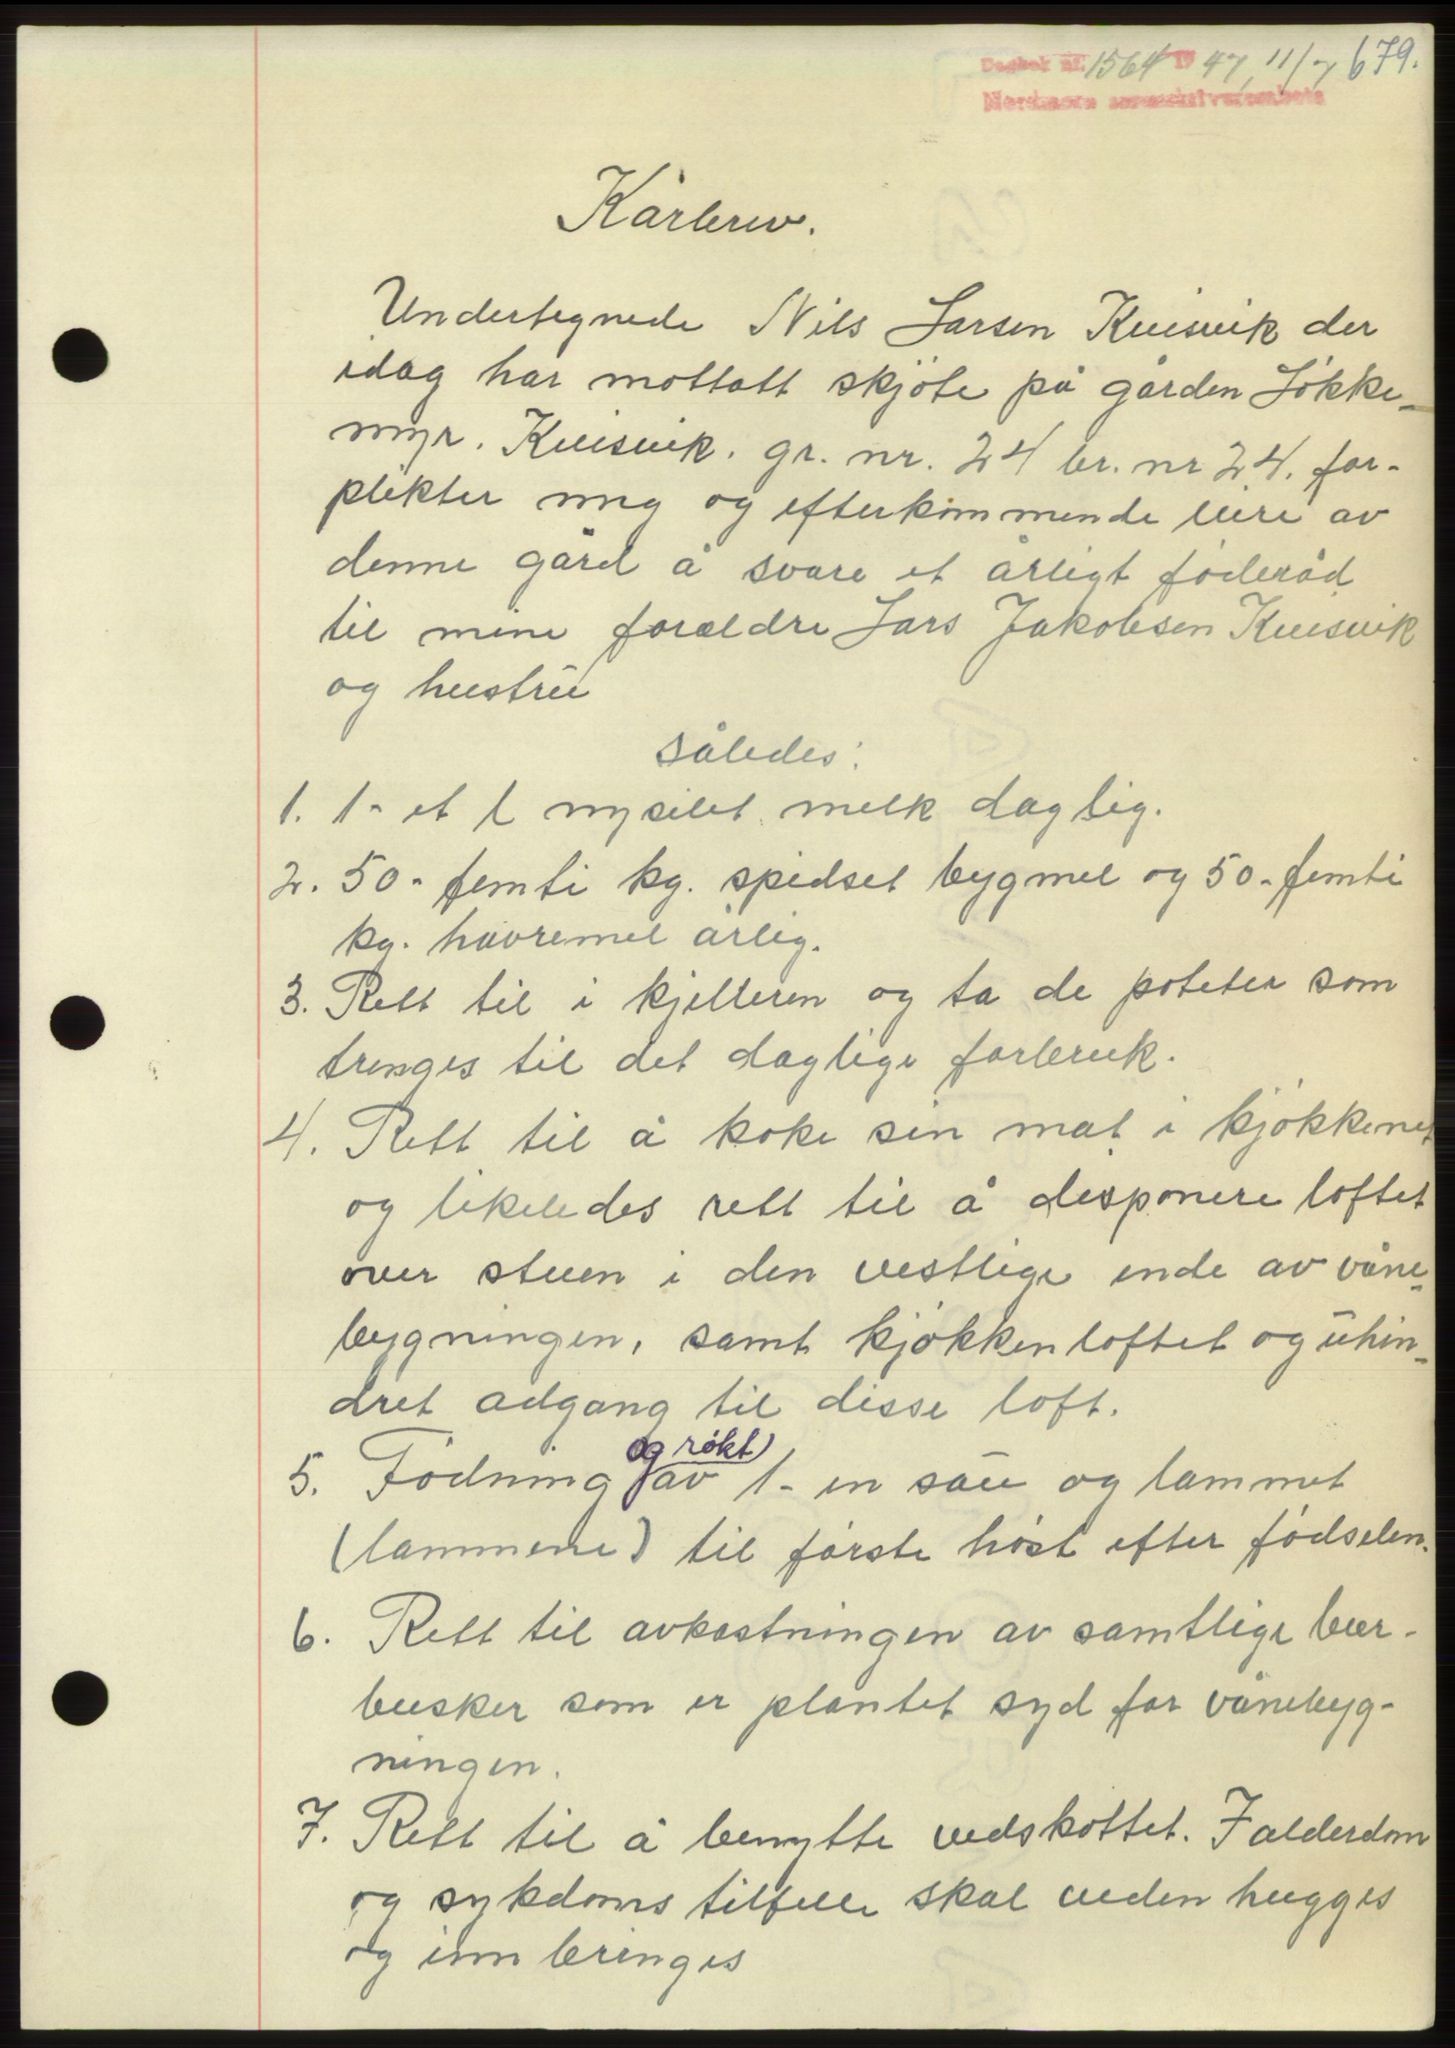 Dagbok nr. 1564 19 47, 11/7 679.
Nordmøre sorenskriverembete
Kårbrev.
Undertegnede Nils Larsen Kvisvik der
idag har mottatt skjöte på gården Lökke-
myr. Kvisvik. gr. nr. 24 br. nr 24. for-
plikter mig og efterkommende eiere av
denne gård å svare et årligt föderåd
til mine forældre Lars Jakobsen Kvisvik
og hustru
således:
1. 1- et l nysilet melk daglig.
2. 50- femti kg. spidset bygmel og 50- femti
kg. havremel årlig.
3. Rett til i kjelleren og ta de poteter som
trenges til det daglige forbruk.
4. Rett til å koke sin mat i kjökkenet
og likeledes rett til å disponere loftet
over stuen i den vestlige ende av våne-
bygningen, samt kjökkenloftet og uhin-
dret adgang til disse loft.
5. Födning og rökt av 1- en sau og lammet
(lammene) til förste höst efter födselen.
6. Rett til avkastningen av samtlige bær-
busker som er plantet syd for vånebyg-
ningen.
7. Rett til å benytte vedskottet. I alderdom
og sykdoms tilfelle skal veden hugges
og innbringes